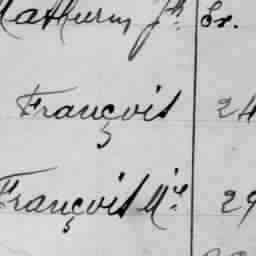 Mathurin Jh. Ex.
François 24
François Mie. 29